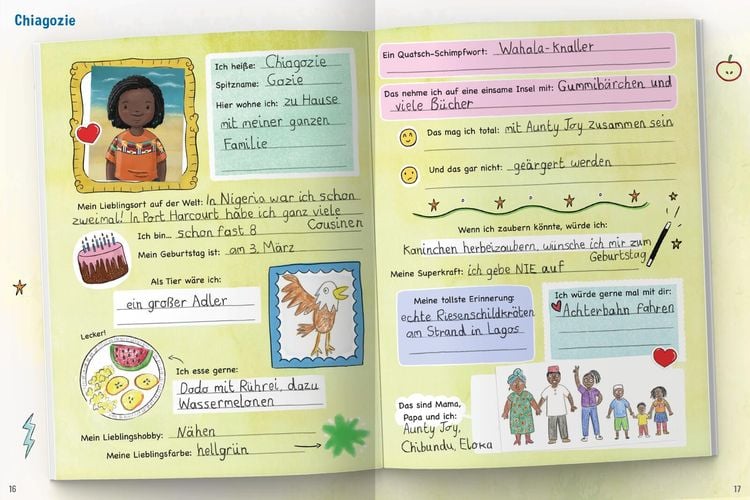 Chiagozie
Ich heiße: Chiagozie
Spitzname: Gozie
Hier wohne ich: zu Hause
mit meiner ganzen
Familie
Mein Lieblingsort auf der Welt: In Nigeria war ich schon
zweimal! In Port Harcourt habe ich ganz viele
Cousinen
Ich bin... schon fast 8
Mein Geburtstag ist: am 3. März
Als Tier wäre ich:
ein großer Adler
Lecker!
Ich esse gerne:
Dodo mit Rührei, dazu
Wassermelonen
Mein Lieblingshobby: Nähen
Meine Lieblingsfarbe: hellgrün
16
Ein Quatsch-Schimpfwort: Wahala-Knaller
Das nehme ich auf eine einsame Insel mit: Gummibärchen und
viele Bücher
Das mag ich total: mit Aunty Joy zusammen sein
Und das gar nicht: geärgert werden
Wenn ich zaubern könnte, würde ich:
Kaninchen herbeizaubern, wünsche ich mir zum
Geburtstag
Meine Superkraft: ich gebe NIE auf
Meine tollste Erinnerung:
echte Riesenschildkröten
am Strand in Lagos
Ich würde gerne mal mit dir:
Achterbahn fahren
Das sind Mama,
Papa und ich:
Aunty Joy,
Chibundu, Eloka
17